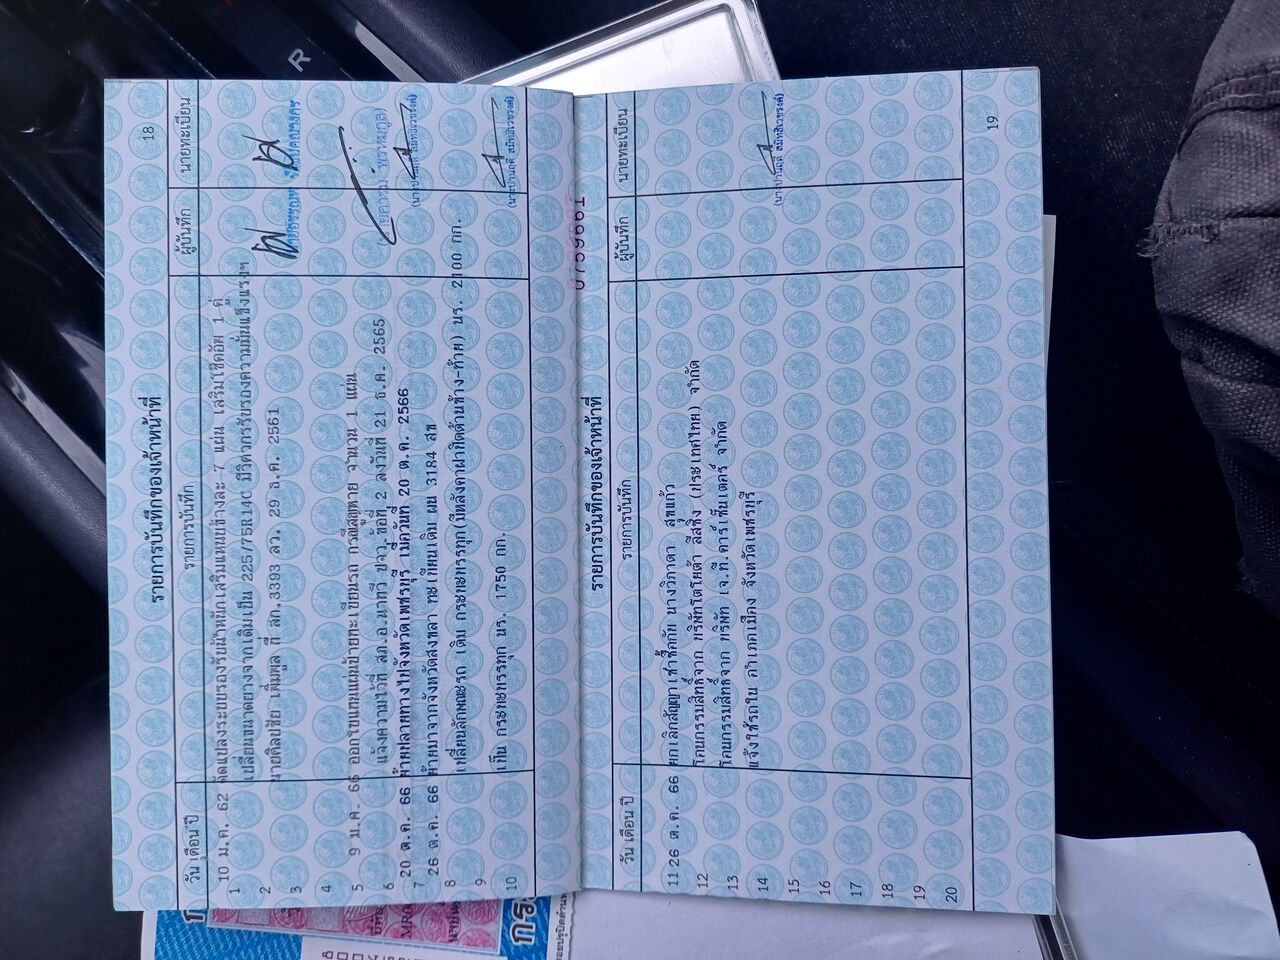 18
รายการบันทึกของเจ้าหน้าที่
วัน เดือน ปี รายการบันทึก ผู้บันทึก นายทะเบียน
1 10 ม.ค. 62 ดัดแปลงระบบรองรับน้ำหนักเสริมแหนบข้างละ 7 แผ่น เสริมโช๊คอัพ 1 คู่
2 เปลี่ยนขนาดยางจากเดิมเป็น 225/75R14C มีวิศวกรรับรองความมั่นแข็งแรงฯ
3 นายศิลปชัย เพิ่มพูล ที่ สก.3393 ลว. 29 ธ.ค. 2561
4
5 9 ม.ค. 66 ออกใบแทนแผ่นป้ายทะเบียนรถ กรณีสูญหาย จำนวน 1 แผ่น
6 แจ้งความไว้ที่ สภ.อ.นาทวี ปจว.ข้อที่ 2 ลงวันที่ 21 ธ.ค. 2565
7 20 ต.ค. 66 ย้ายปลายทางไปจังหวัดเพชรบุรี เมื่อวันที่ 20 ต.ค. 2566
8 26 ต.ค. 66 ย้ายมาจากจังหวัดสงขลา ทะเบียนเดิม ผน 3184 สข
(นางปานฤดี สมิทธิเวชรงค์)
9 เปลี่ยนลักษณะรถ เดิม กระบะบรรทุก(มีหลังคาฝาปิดด้านข้าง-ท้าย) นร. 2100 กก.
10 เป็น กระบะบรรทุก นร. 1750 กก.
(นางปานฤดี สมิทธิเวชรงค์)
0759661
รายการบันทึกของเจ้าหน้าที่
วัน เดือน ปี รายการบันทึก ผู้บันทึก นายทะเบียน
11 26 ต.ค. 66 ยกเลิกสัญญาเช่าซื้อกับ นางวิภาดา สุขแก้ว
12 โอนกรรมสิทธิ์จาก บริษัทโตโยต้า ลีสซิ่ง (ประเทศไทย) จำกัด
13 โอนกรรมสิทธิ์จาก บริษัท เจ.ที.คาร์เซ็นเตอร์ จำกัด
14 แจ้งใช้รถใน อำเภอเมือง จังหวัดเพชรบุรี
(นางปานฤดี สมิทธิเวชรงค์)
15
16
17
18
19
20
19
R